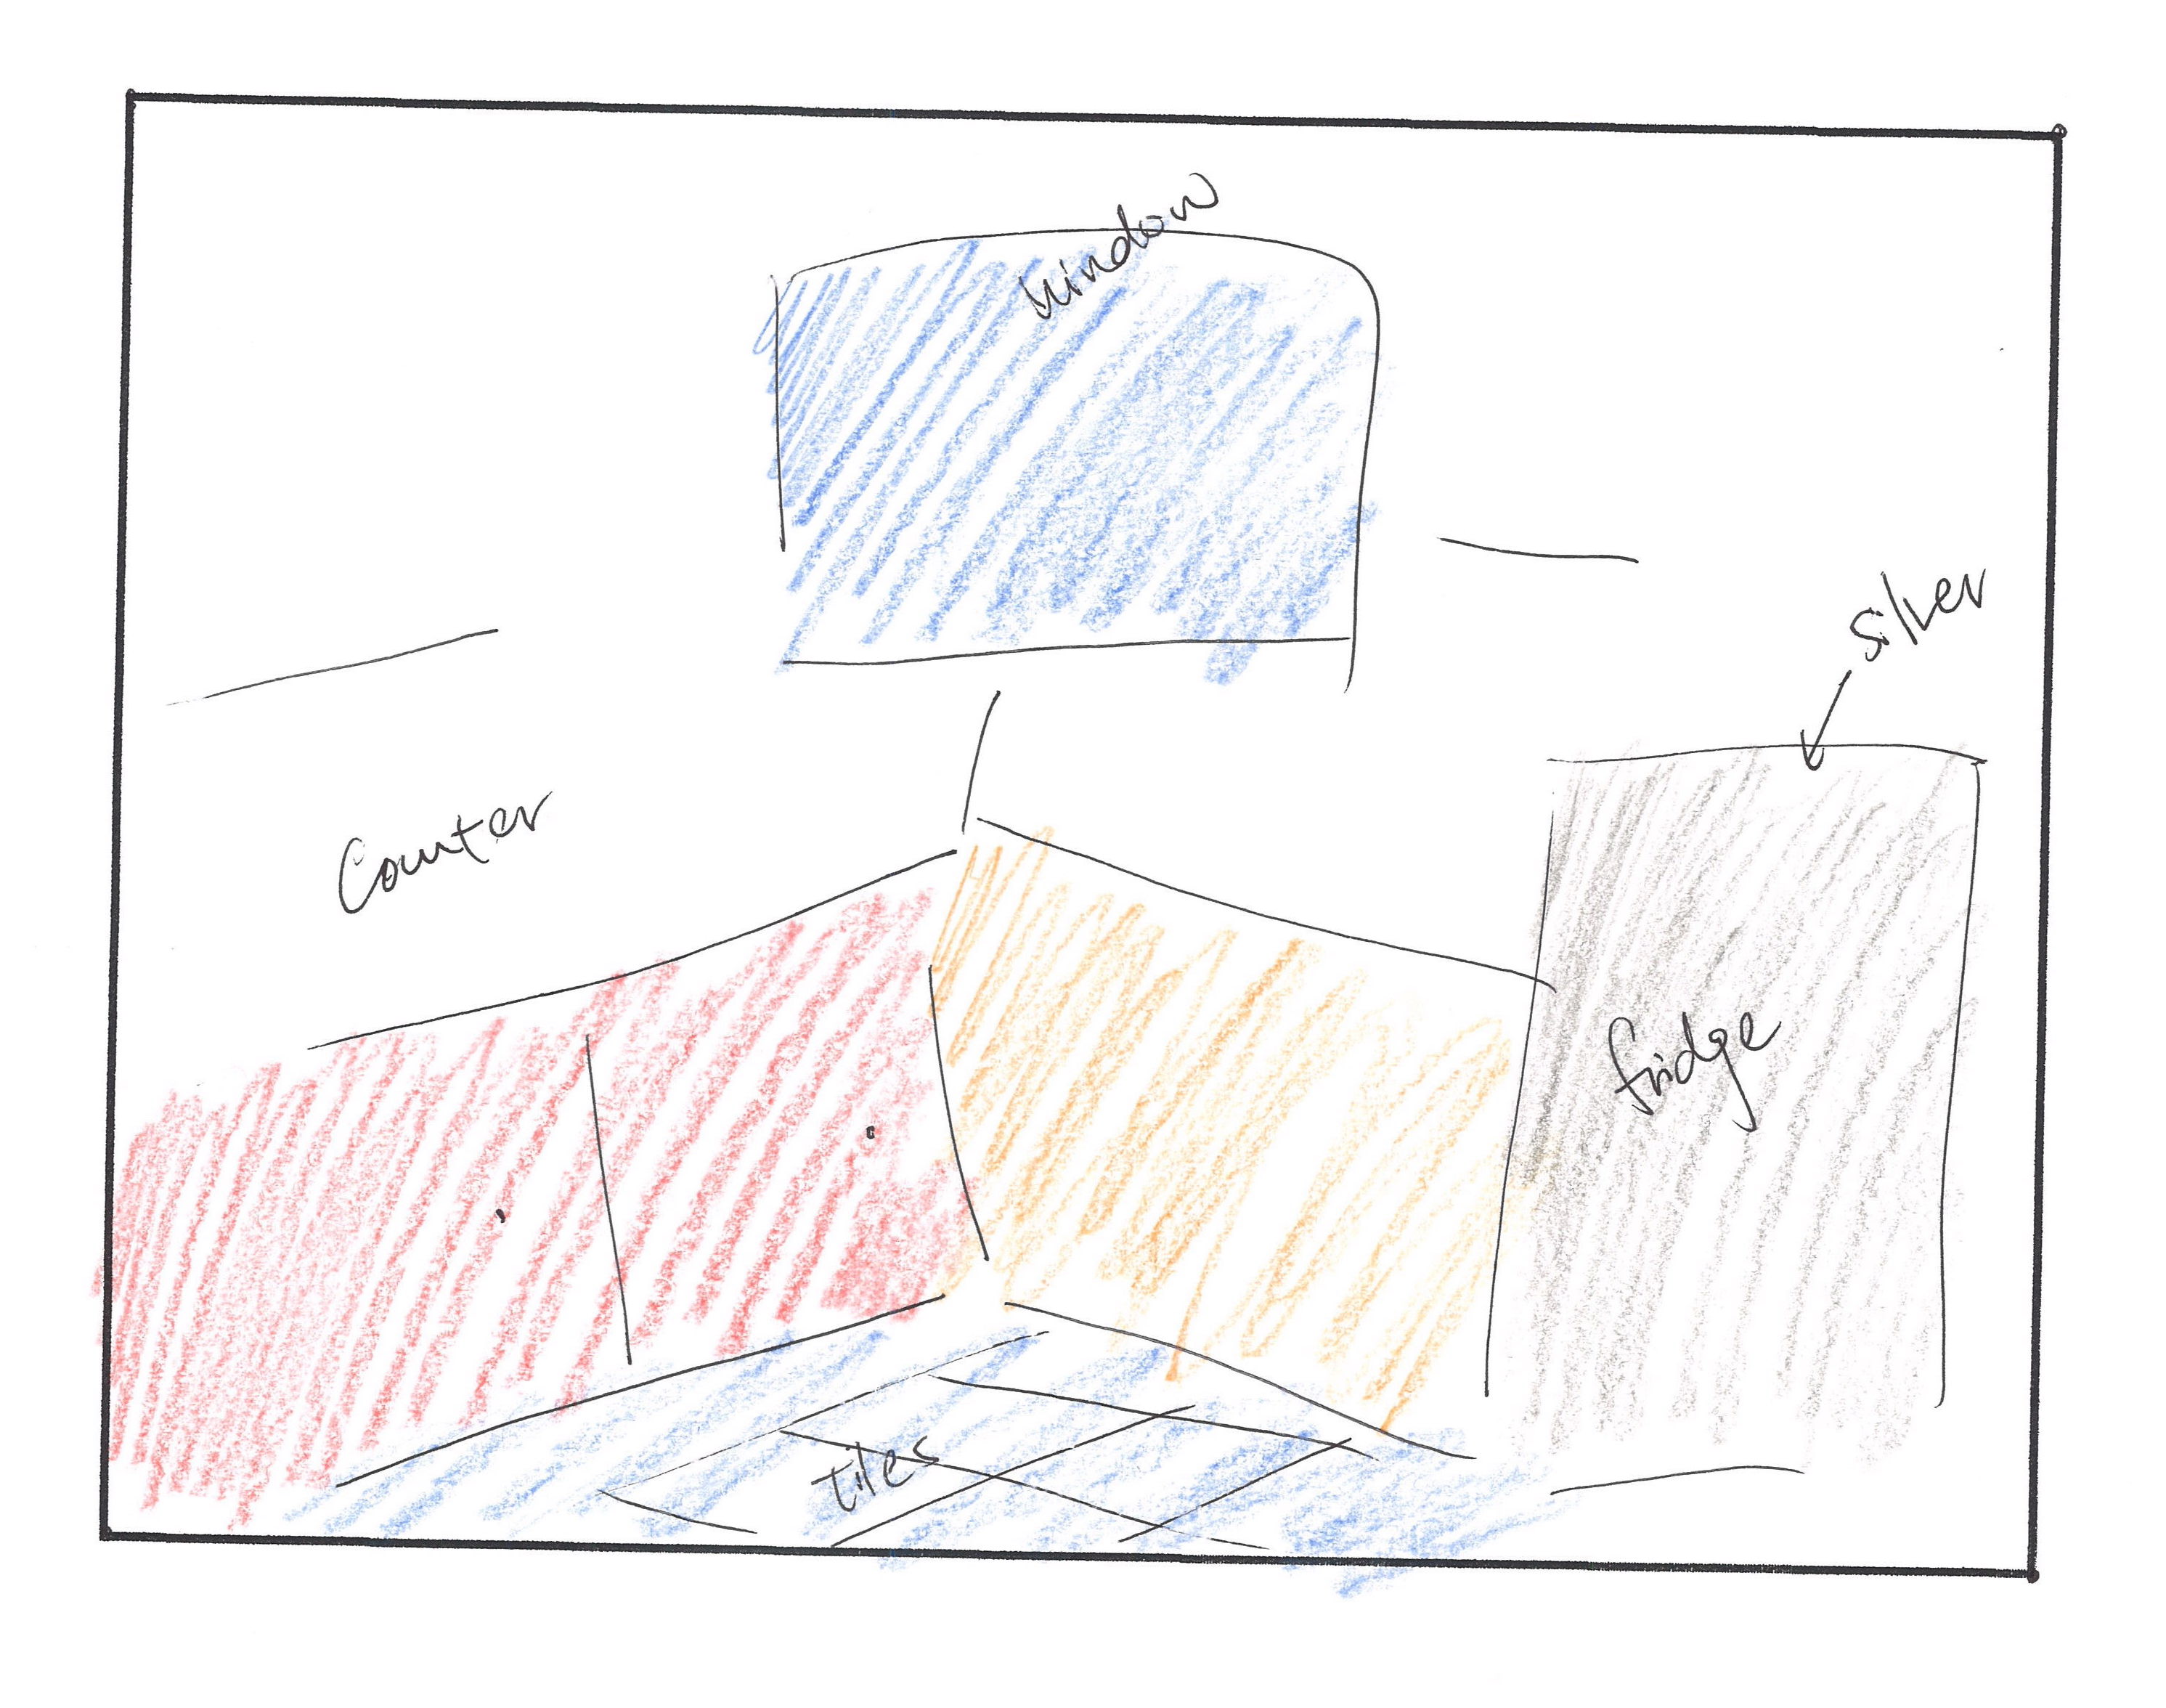 window
silver
Counter
fridge
tiles